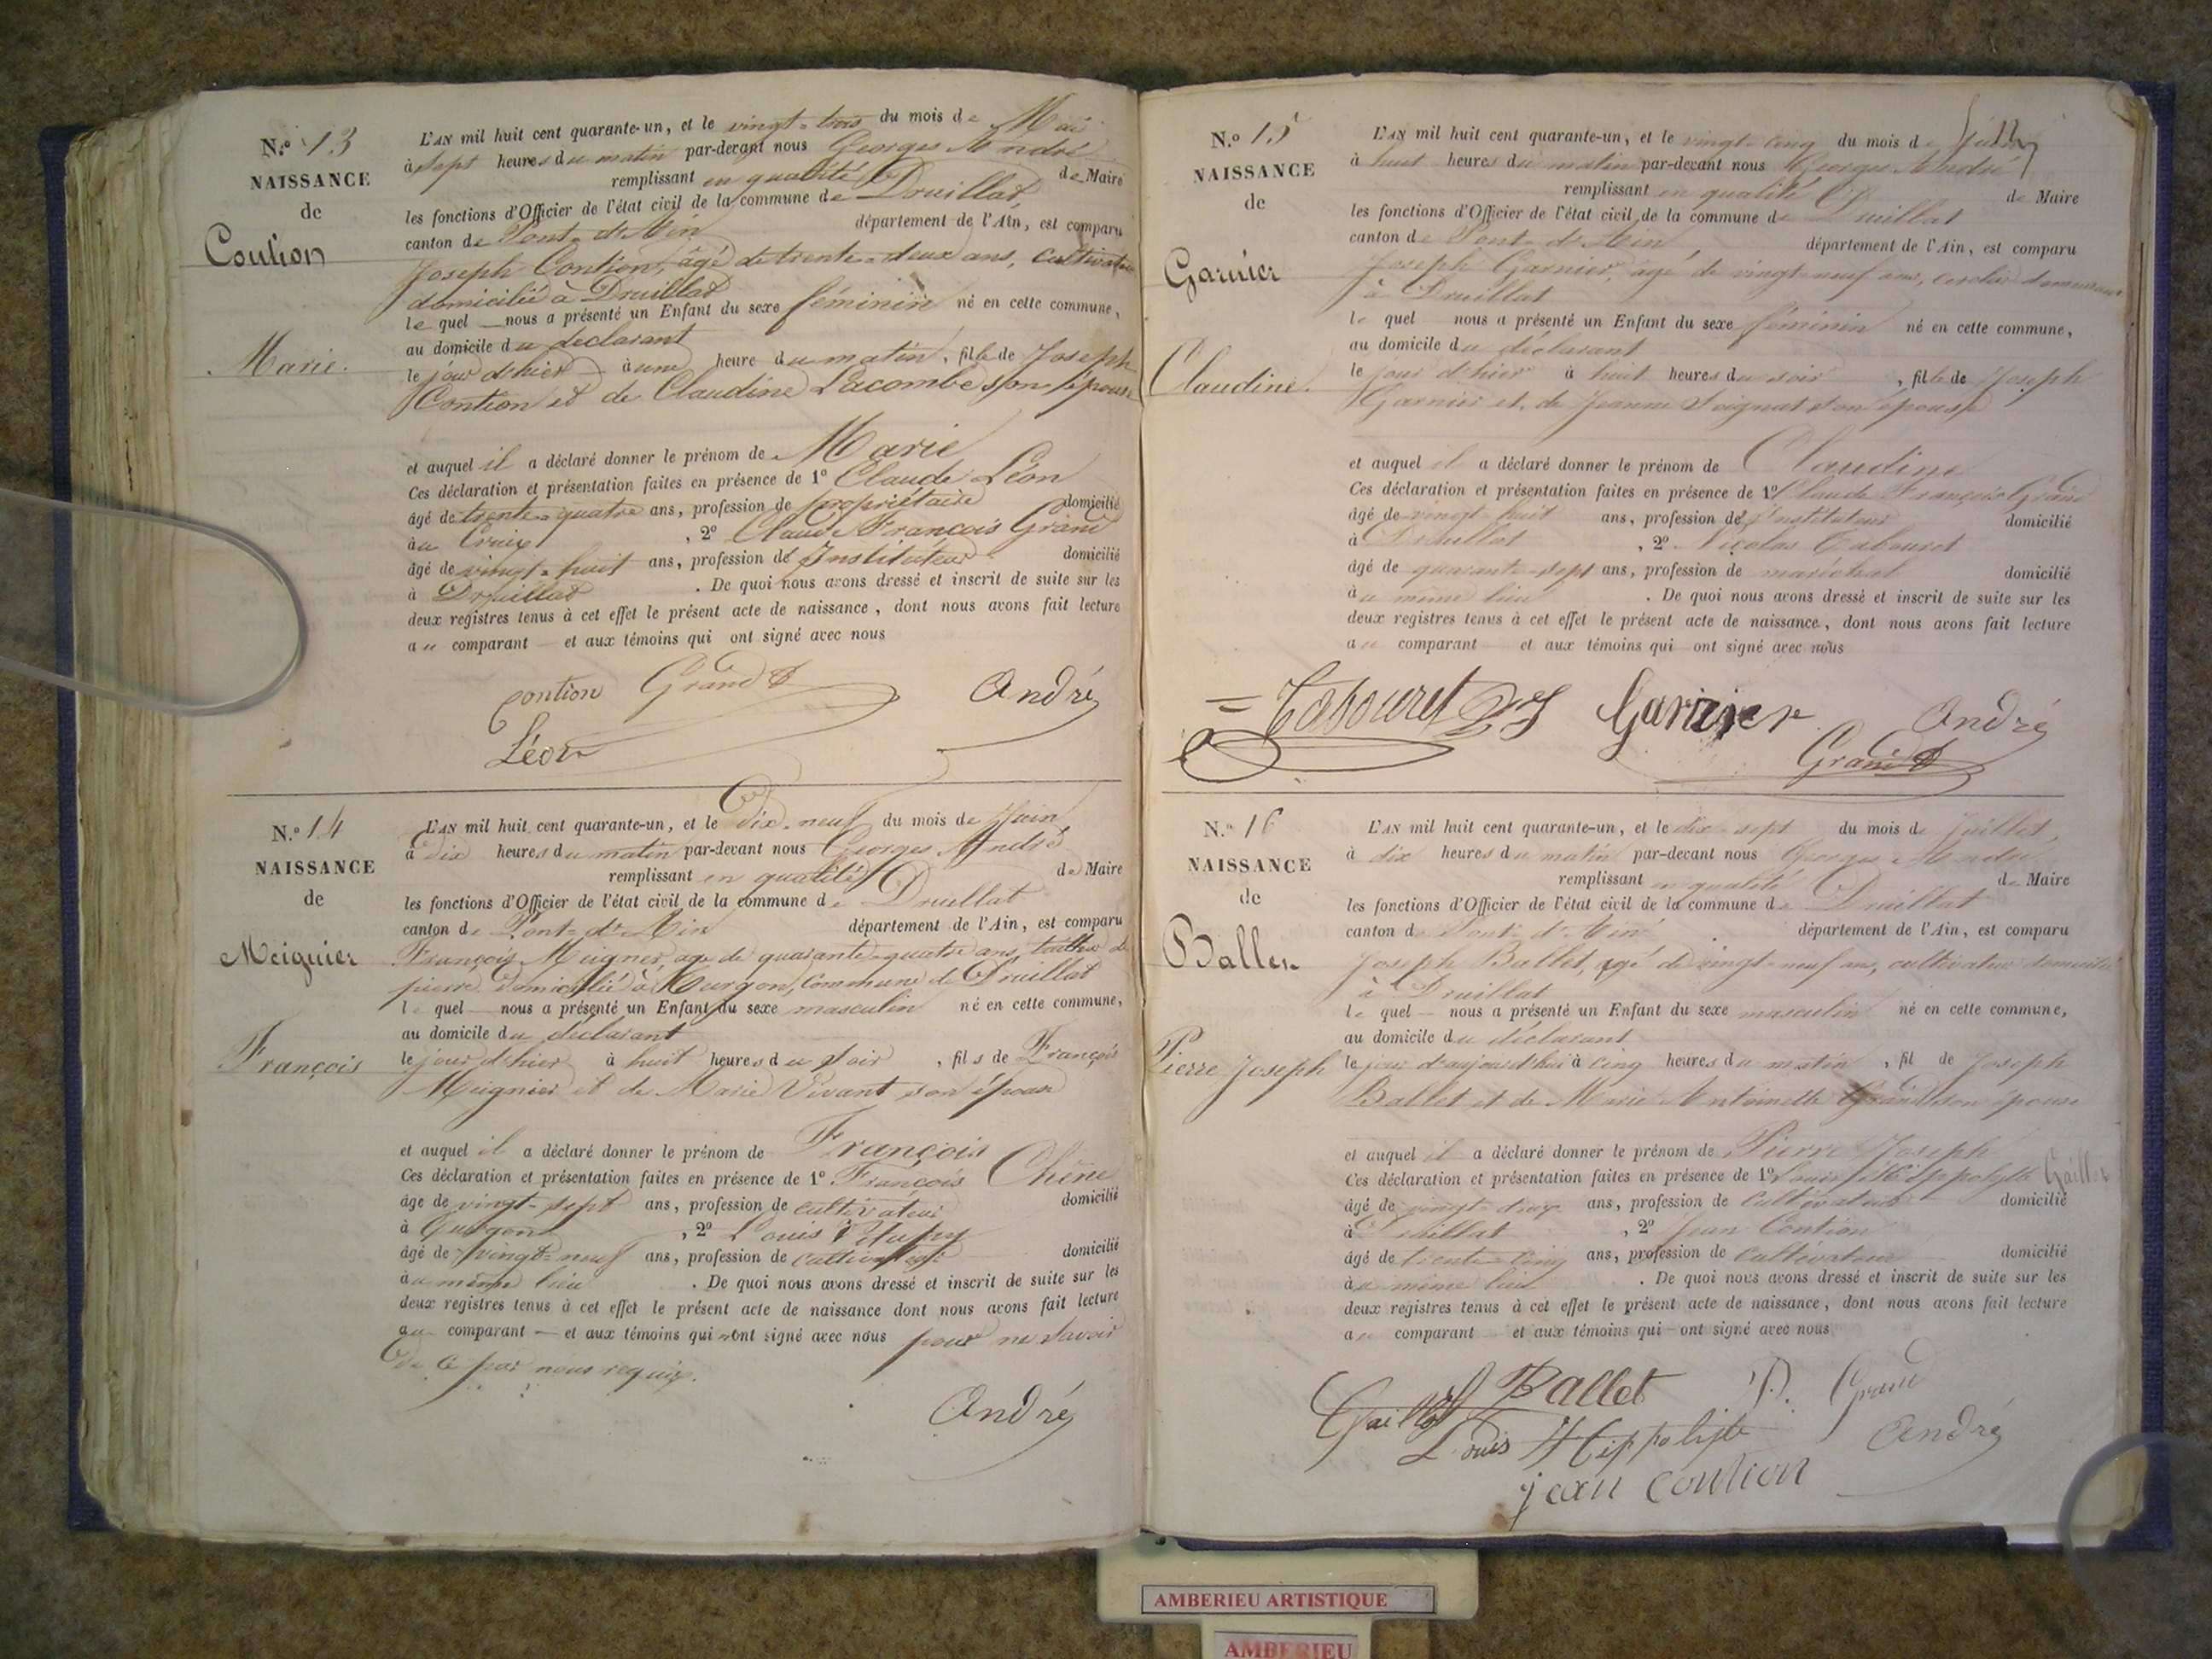 N.º 13
NAISSANCE
de
Contion
Marie.
L'AN mil huit cent quarante-un, et le vingt-trois du mois de Mai
à sept heures du matin par-devant nous Georges André
remplissant en qualité de Maire
les fonctions d'Officier de l'état civil de la commune de Druillat
canton de Pont-d'Ain département de l'Ain, est comparu
Joseph Contion, âgé de trente-deux ans, cultivateur
domicilié à Druillat
lequel nous a présenté un Enfant du sexe féminin né en cette commune,
au domicile du déclarant
le jour d'hier à une heure du matin, fille de Joseph
Contion et de Claudine Lacombe son épouse
et auquel il a déclaré donner le prénom de Marie
Ces déclaration et présentation faites en présence de 1º Claude Léon
âgé de trente-quatre ans, profession de propriétaire domicilié
au Craix, 2º Claude François Grand
âgé de vingt-huit ans, profession de Instituteur domicilié
à Druillat. De quoi nous avons dressé et inscrit de suite sur les
deux registres tenus à cet effet le présent acte de naissance, dont nous avons fait lecture
au comparant — et aux témoins qui ont signé avec nous
Contion Grand André
Léon
N.º 14
NAISSANCE
de
Meignier
François
L'AN mil huit cent quarante-un, et le dix-neuf du mois de Juin
à dix heures du matin par-devant nous Georges André
remplissant en qualité de Maire
les fonctions d'Officier de l'état civil de la commune de Druillat
canton de Pont-d'Ain département de l'Ain, est comparu
François Meignier, âgé de quarante-quatre ans, tailleur de
pierre domicilié à Turgon, Commune de Druillat
lequel nous a présenté un Enfant du sexe masculin né en cette commune,
au domicile du déclarant
le jour d'hier à huit heures du soir, fils de François
Meignier et de Marie Vivant son épouse
et auquel il a déclaré donner le prénom de François
Ces déclaration et présentation faites en présence de 1º François Chêne
âgé de vingt-sept ans, profession de cultivateur domicilié
à Turgon, 2º Louis
âgé de vingt-neuf ans, profession de cultivateur domicilié
au même lieu. De quoi nous avons dressé et inscrit de suite sur les
deux registres tenus à cet effet le présent acte de naissance dont nous avons fait lecture
au comparant — et aux témoins qui n'ont signé avec nous pour ne savoir
de ce par nous requis.
André
N.º 15
NAISSANCE
de
Garnier
Claudine.
L'AN mil huit cent quarante-un, et le vingt-cinq du mois de Juin
à huit heures du matin par-devant nous Georges André
remplissant en qualité de Maire
les fonctions d'Officier de l'état civil de la commune de Druillat
canton de Pont-d'Ain, département de l'Ain, est comparu
Joseph Garnier, âgé de vingt-neuf ans, demeurant
à Druillat
lequel nous a présenté un Enfant du sexe féminin né en cette commune,
au domicile du déclarant
le jour d'hier à huit heures du soir, fille de Joseph
Garnier et de Jeanne Soignat son épouse
et auquel il a déclaré donner le prénom de Claudine
Ces déclaration et présentation faites en présence de 1º Claude François Grand
âgé de vingt-huit ans, profession de Instituteur domicilié
à Druillat, 2º Nicolas Tabouret
âgé de quarante-sept ans, profession de maréchal domicilié
au même lieu. De quoi nous avons dressé et inscrit de suite sur les
deux registres tenus à cet effet le présent acte de naissance, dont nous avons fait lecture
au comparant et aux témoins qui ont signé avec nous
Tabouret Garnier André
Grand
N.º 16
NAISSANCE
de
Ballet
Pierre Joseph
L'AN mil huit cent quarante-un, et le dix-sept du mois de Juillet,
à dix heures du matin par-devant nous Georges André
remplissant en qualité de Maire
les fonctions d'Officier de l'état civil de la commune de Druillat
canton de Pont-d'Ain département de l'Ain, est comparu
Joseph Ballet, âgé de vingt-neuf ans, cultivateur domicilié
à Druillat
lequel — nous a présenté un Enfant du sexe masculin né en cette commune,
au domicile du déclarant
le jour d'aujourd'hui à cinq heures du matin, fil de Joseph
Ballet et de Marie Antoinette Grand son épouse
et auquel il a déclaré donner le prénom de Pierre Joseph
Ces déclaration et présentation faites en présence de 1º Louis Hippolyte Gaillot
âgé de vingt-deux ans, profession de Cultivateur domicilié
à Druillat, 2º Jean Contion
âgé de trente-cinq ans, profession de Cultivateur domicilié
au même lieu. De quoi nous avons dressé et inscrit de suite sur les
deux registres tenus à cet effet le présent acte de naissance, dont nous avons fait lecture
au comparant et aux témoins qui ont signé avec nous
Gaillot Ballet P. Grand
Louis Hippolite André
jean contion
AMBERIEU ARTISTIQUE
AMBERIEU